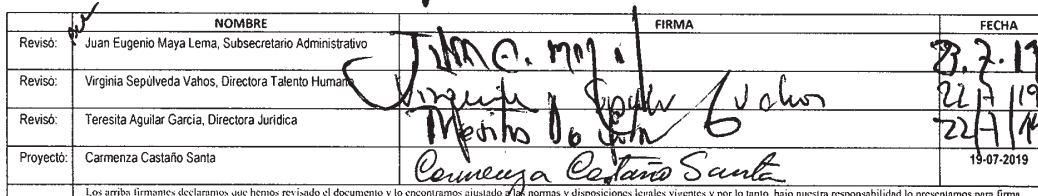 NOMBRE FIRMA FECHA
Revisó: Juan Eugenio Maya Lema, Subsecretario Administrativo 23.7.19
Revisó: Virginia Sepúlveda Vahos, Directora Talento Humano Virginia Sepulv Vahos 22/7/19
Revisó: Teresita Aguilar García, Directora Jurídica 22/7/19
Proyectó: Carmenza Castaño Santa Carmenza Castaño Santa 19-07-2019
Los arriba firmantes declaramos que hemos revisado el documento y lo encontramos ajustado a las normas y disposiciones legales vigentes y por lo tanto, bajo nuestra responsabilidad lo presentamos para firma